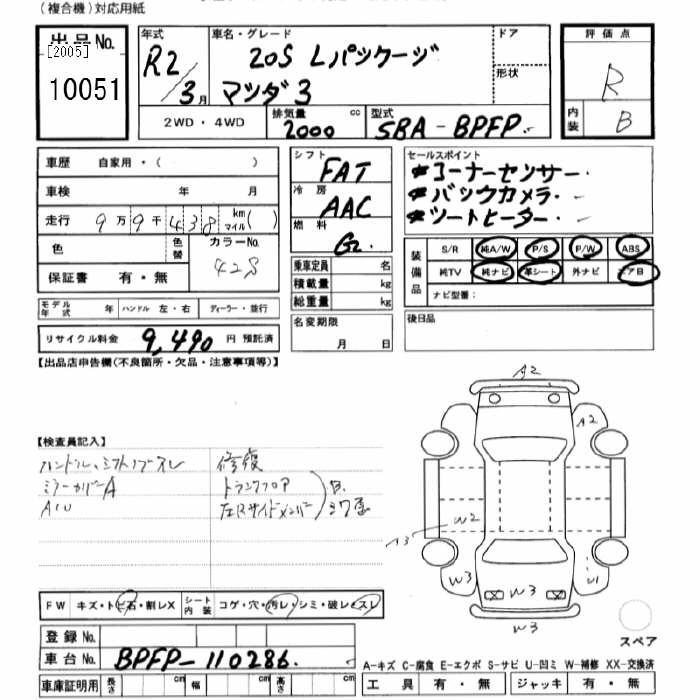 (複合機)対応用紙
出品No.
[2005]
10051
年式
R2/3月
車名・グレード
20S Lパッケージ
マツダ3
ドア
形状
評価点
R
内装
B
2WD・4WD
排気量
2000 cc
型式
5BA-BPFP
車歴 自家用・( )
車検 年 月
走行 9万9千438 km マイル( )
色
色替
カラーNo.
42S
保証書 有・無
シフト
FAT
冷房
AAC
燃料
G
乗車定員 名
積載量 kg
総重量 kg
セールスポイント
*コーナーセンサー・
*バックカメラ・
*シートヒーター・
装備品
S/R 純A/W P/S P/W ABS
純TV 純ナビ 革シート 外ナビ エアB
ナビ型番:
モデル年式 年 ハンドル 左・右 ディーラー・並行
リサイクル料金 9,490 円 預託済
名変期限
月 日
後日品
【出品店申告欄(不良箇所・欠品・注意事項等)】
【検査員記入】
ハンドル、シフトノブスレ
ミラーカバーA
修復
トランクフロア
左Rサイドメンバー
A2
A2
W2
A3
W3
W3
U1
W3
スペア
FW キズ・トビ石・割レX
シート内装 コゲ・穴・汚レ・シミ・破レ・スレ
登録No.
車台No. BPFP-110286
車庫証明用 長さ cm 幅 cm 高さ cm
A-キズ C-腐食 E-エクボ S-サビ U-凹ミ W-補修 XX-交換済
工具 有・無 ジャッキ 有・無